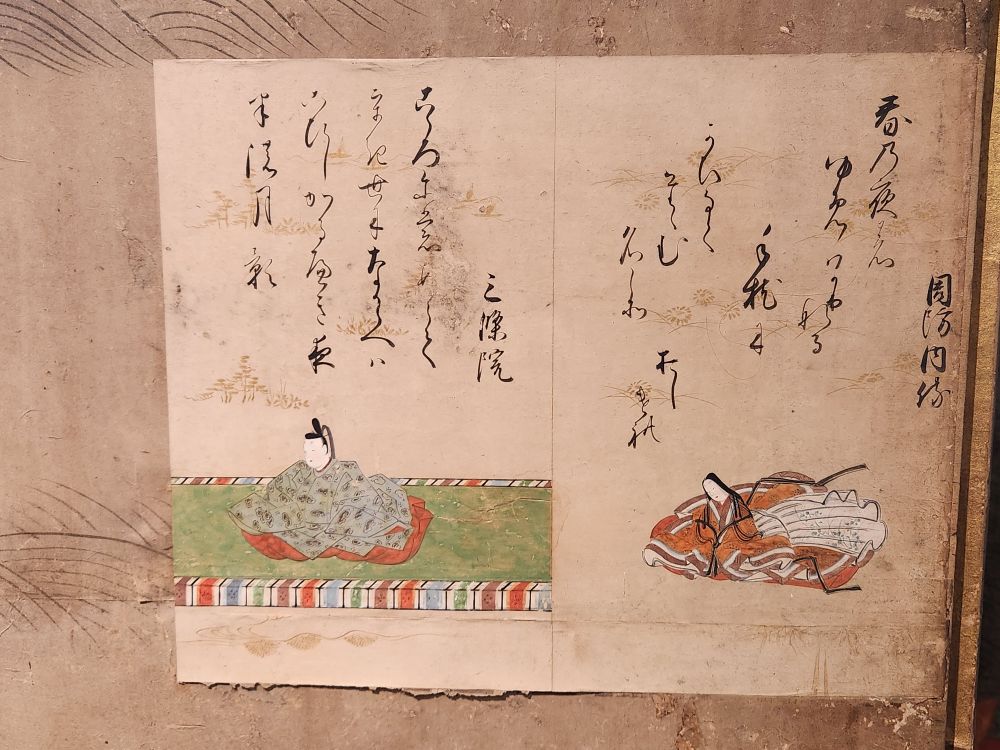 周防内侍
春乃夜の
ゆめハかり
なる
手枕に
かひなく
たゝむ
名こそ
おし
けれ
三條院
こゝろにもあらて
うき世になからへハ
こひしかるへき夜
半の月